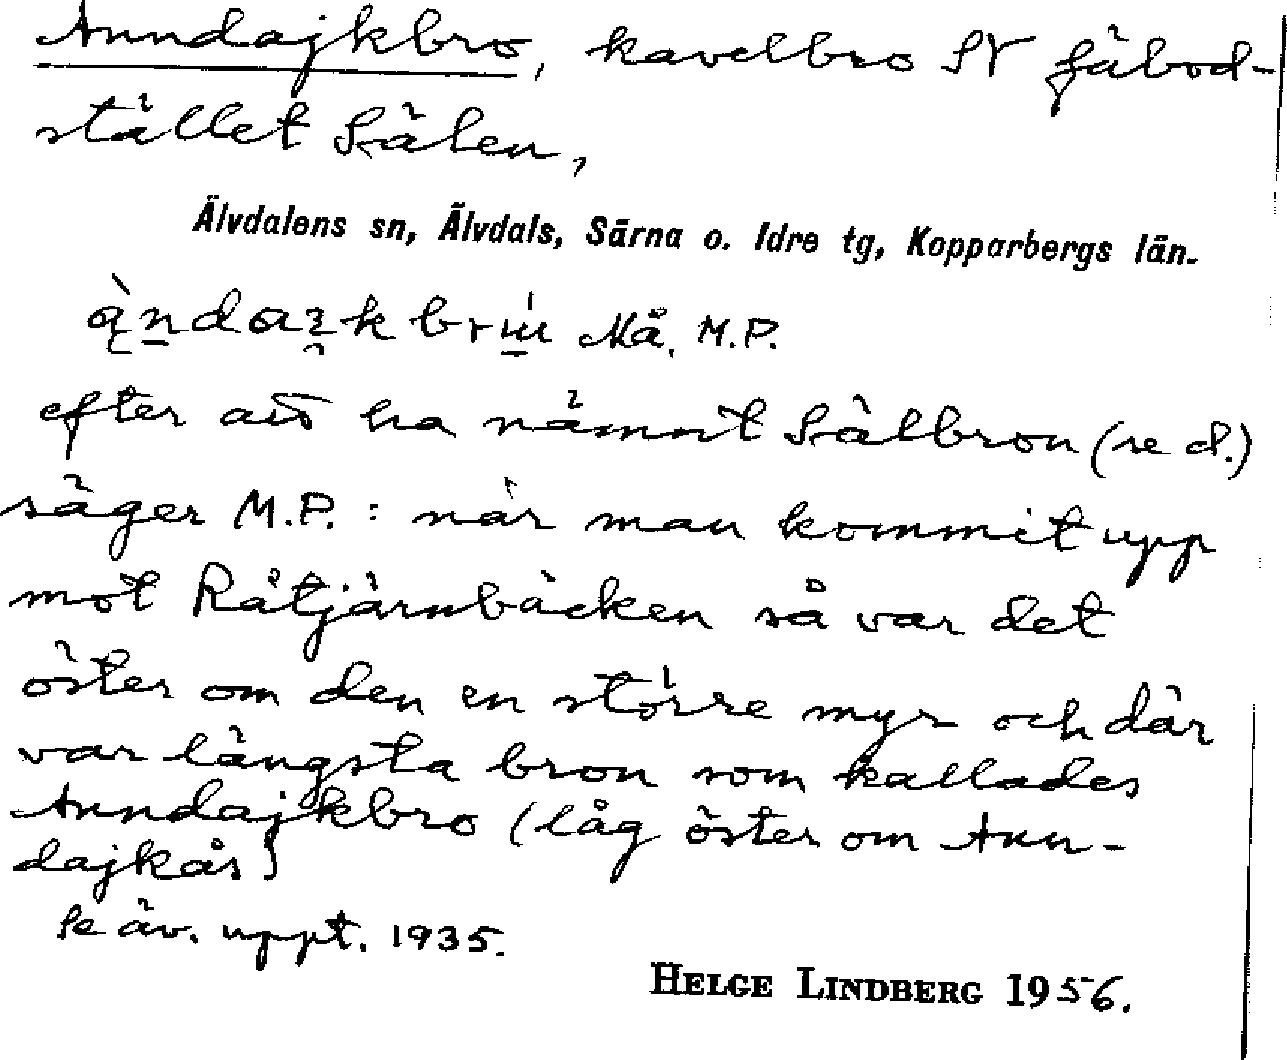 Anndajkbro, kavelbro SV fäbod-
stället Sälen,
Älvdalens sn, Älvdals, Särna o. Idre tg, Kopparbergs län.
Må, M.P.
efter att ha nämnt Sälbron (se d.)
säger M.P. : när man kommit upp
mot Råtjärnbäcken så var det
öster om den en större myr och där
var längsta bron som kallades
Anndajkbro (låg öster om Ann-
dajkås)
Se äv. uppt. 1935.
HELGE LINDBERG 1956.